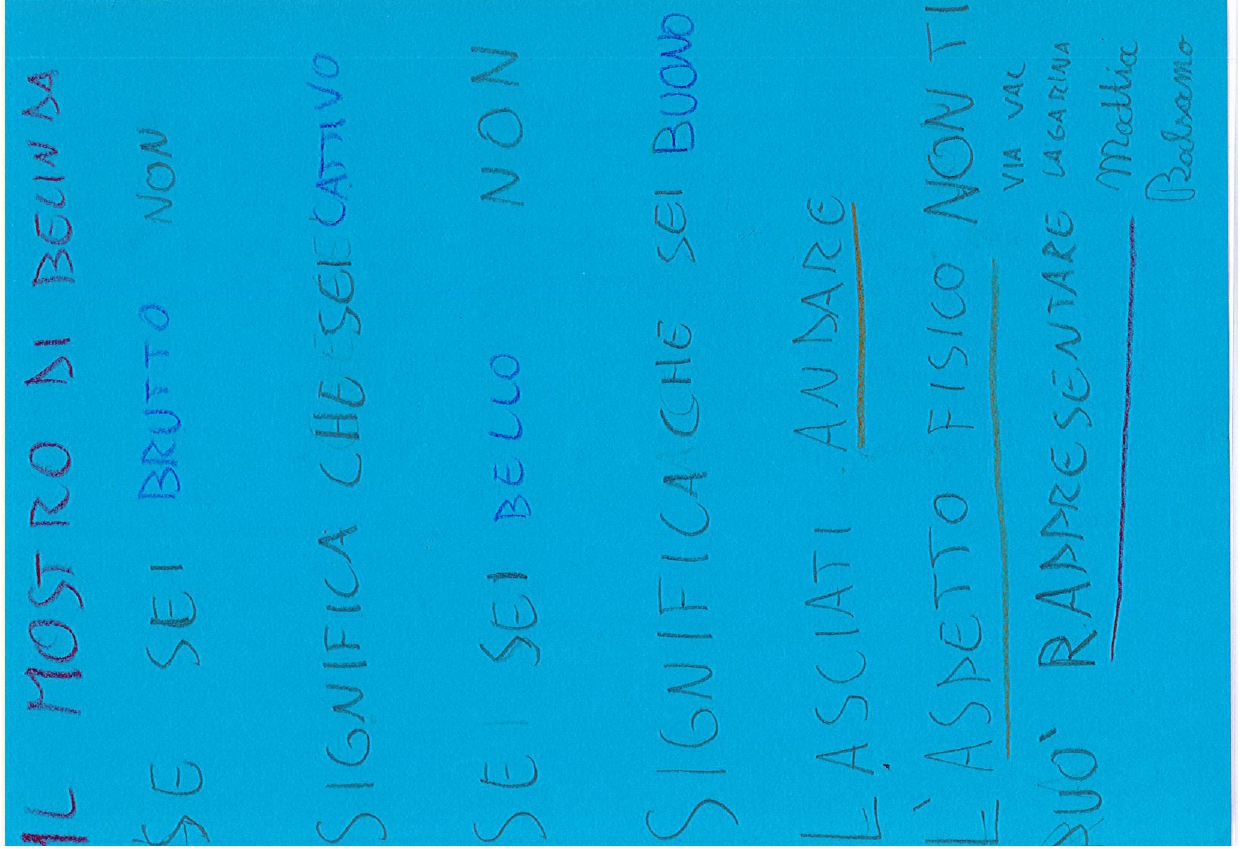 IL MOSTRO DI BELINDA
SE SEI BRUTTO NON
SIGNIFICA CHE SEI CATTIVO
SE SEI BELLO NON
SIGNIFICA CHE SEI BUONO
LASCIATI ANDARE
L'ASPETTO FISICO NON TI
PUÒ RAPPRESENTARE
VIA VAL
LAGARINA
Mattia
Balsamo